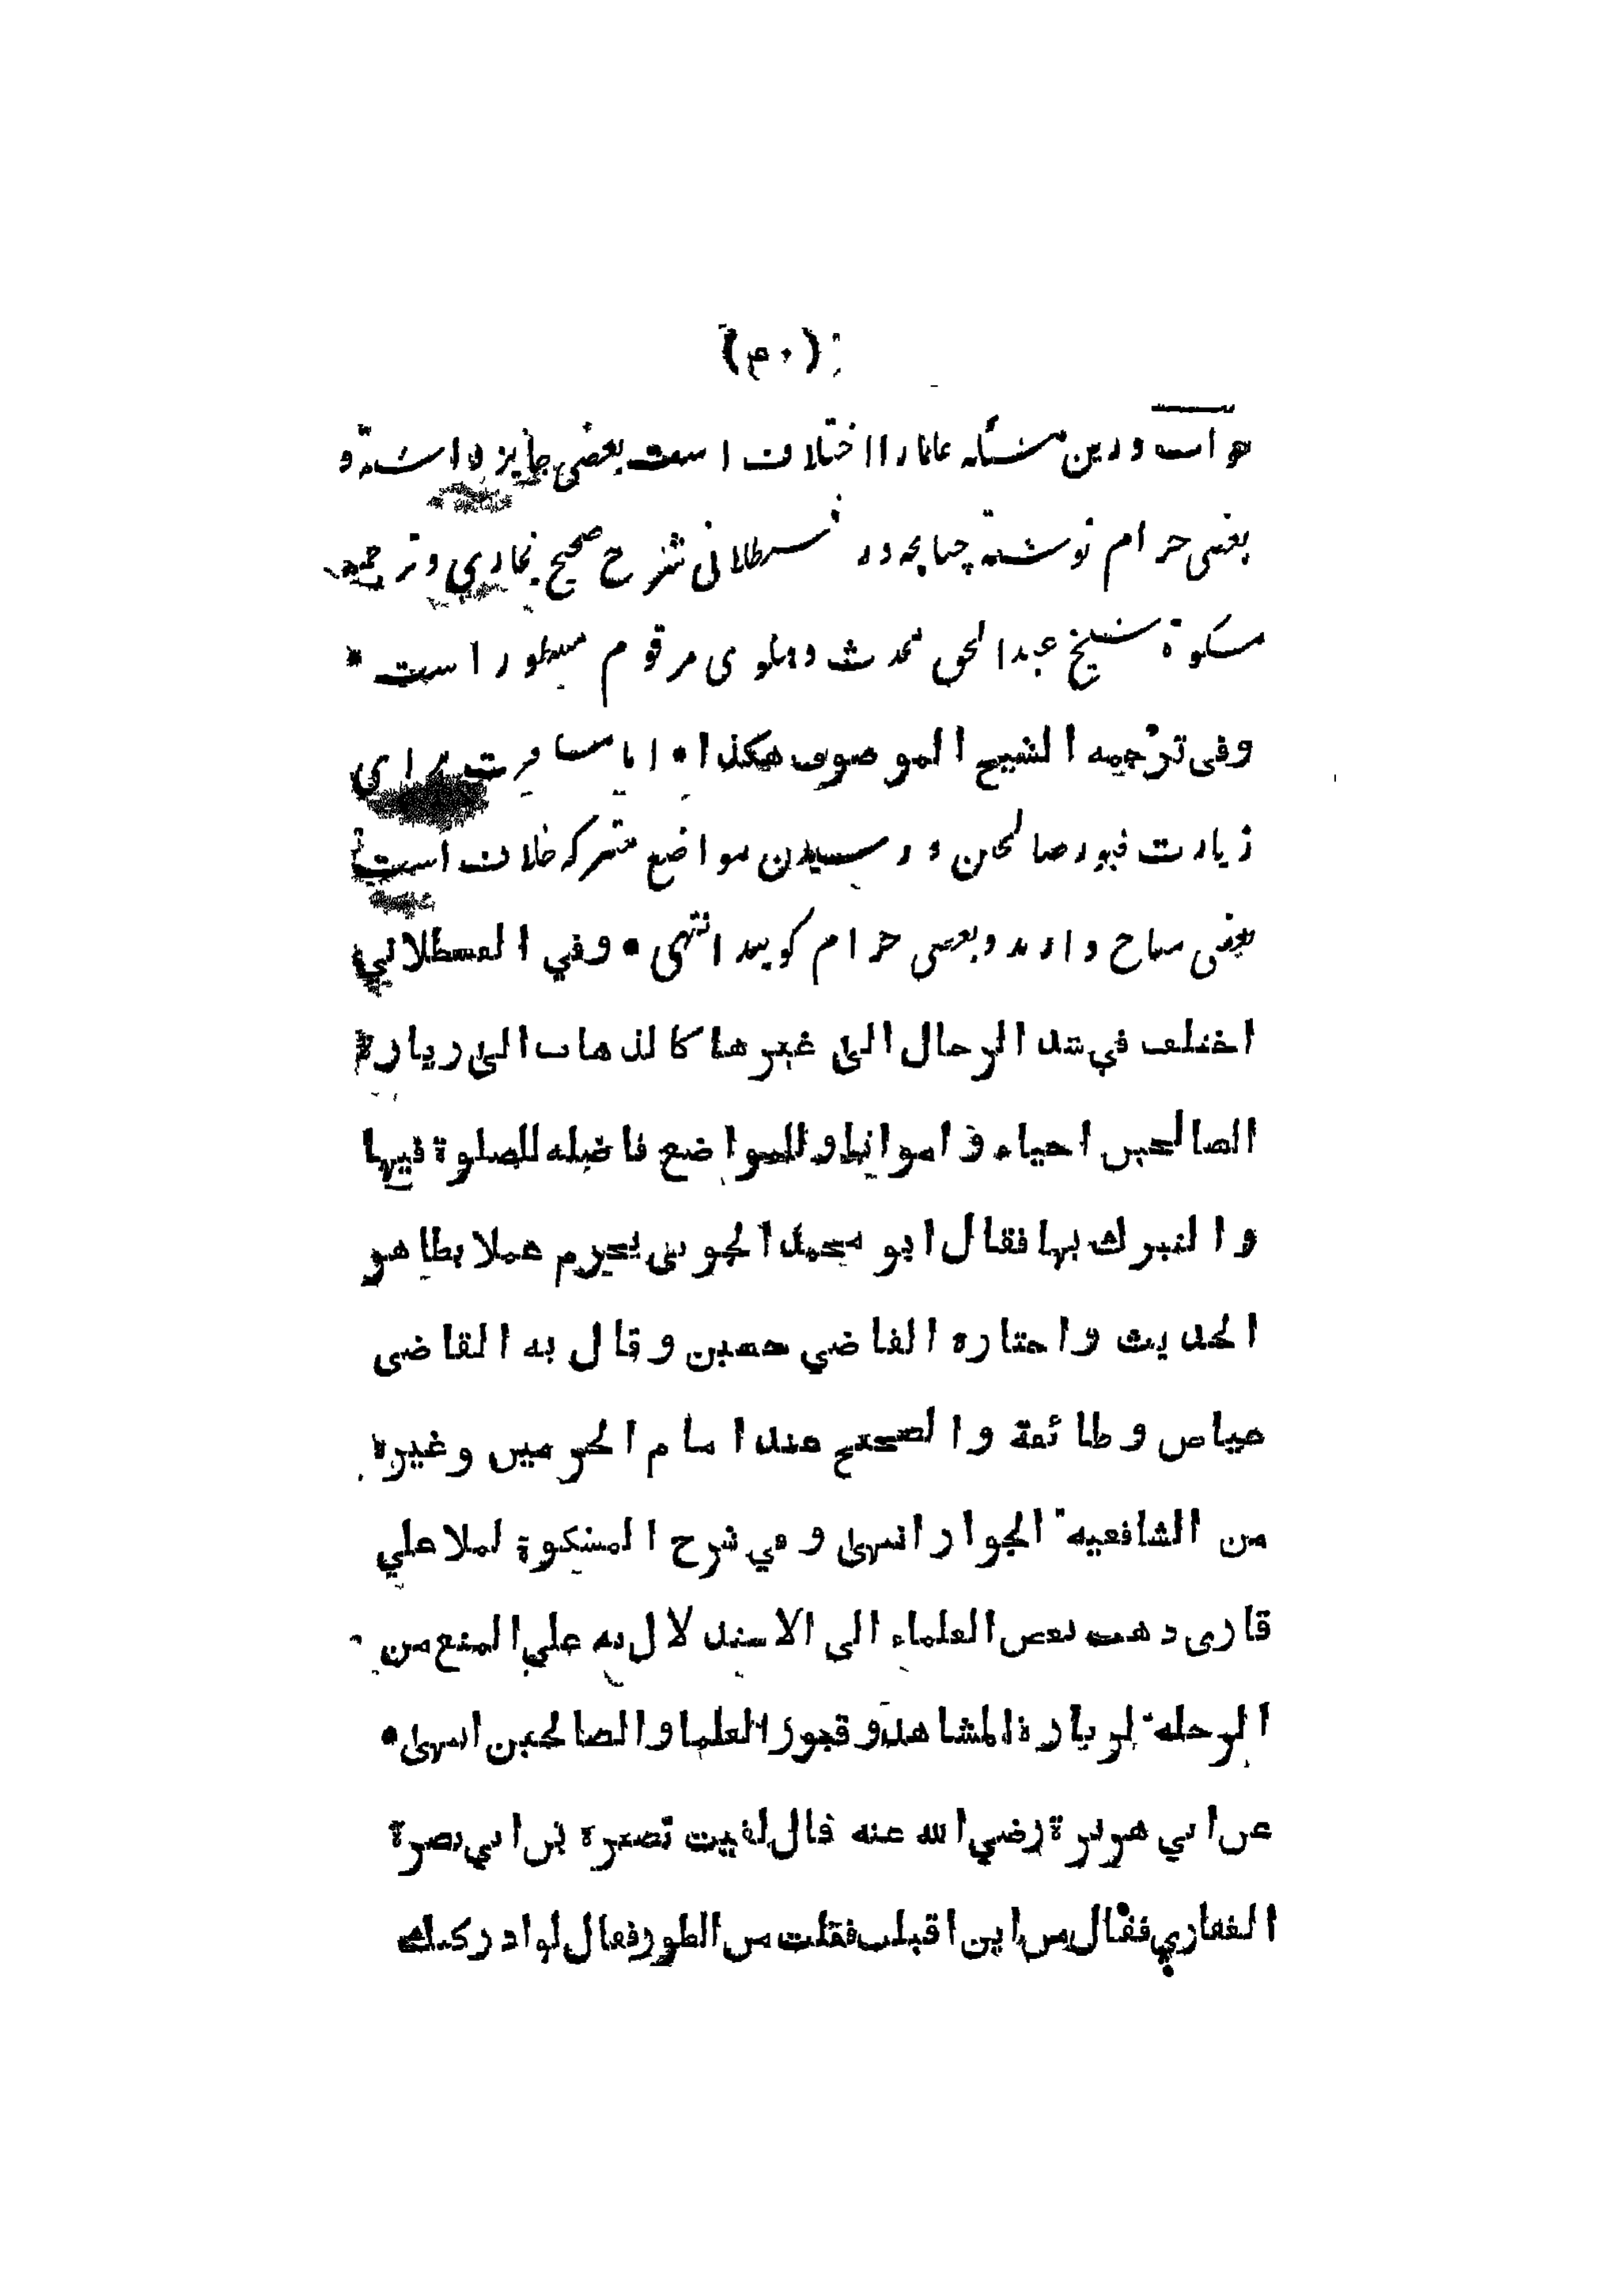 (۴۰)
جواب درین مسئله علما را اختلاف است بعضی جایز داشته و
بعضی حرام نوشته چنانچه در قسطلانی شرح صحیح بخاری و ترجمه
مشکوة شیخ عبد الحق محدث دهلوی مرقوم مسطور است *
وفی ترجمه الشیخ الموصوف هكذا * اما مسافرت برای
زیارت قبور صالحین و رسیدن مواضع متبرکه خلاف است
بعضی مباح دارند و بعضی حرام گویند انتهی * وفي القسطلاني
اختلف في شد الرحال الی غیرها كالذهاب الی زیارة
الصالحین احیاء و امواتا و للمواضع فاضله للصلوة فیها
و التبرك بها فقال ابو محمد الجوینی یحرم عملا بظاهر
الحدیث و اختاره القاضي حسین و قال به القاضی
عیاض و طائفة و الصحیح عند امام الحرمین و غیره
من الشافعیه الجواز انتهی و في شرح المشكوة لملا علي
قاری ذهب بعض العلماء الی الاستدلال به علي المنع من
الرحله لزیارة المشاهد و قبور العلما و الصالحین انتهی *
عن ابي هریرة رضي الله عنه قال لقیت بصرة بن ابي بصرة
الغفاري فقال من این اقبلت فقلت من الطور فقال لو ادركتك